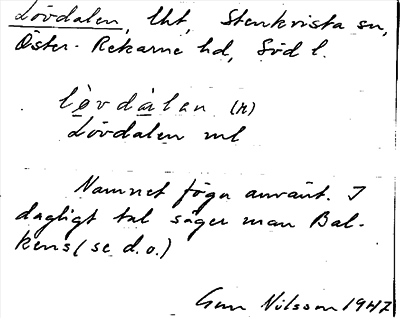 Lövdalen, lht, Stenkvista sn,
Öster-Rekarne hd, Södl.
lövdàlen (n)
Lövdalen ml
Namnet föga använt. I
dagligt tal säger man Bal-
kens (se d.o.)
Gun Nilsson 1947